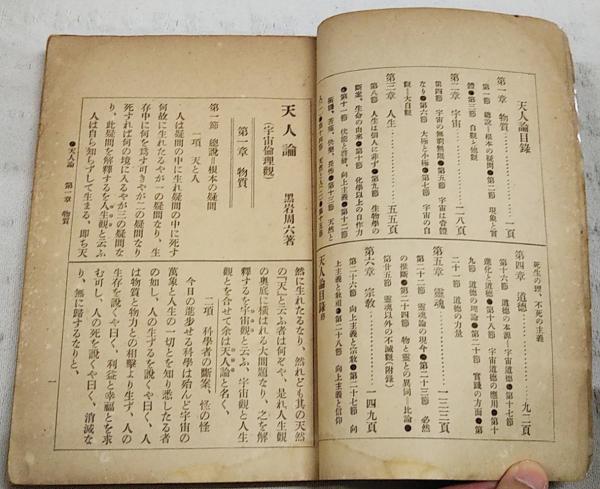 天人論目錄
第一章 物質 一頁
第一節 總說=根本の疑問●第二節 現象と實
體●第三節 自觀と他觀
第二章 宇宙 二八頁
第四節 宇宙の無窮無邊●第五節 宇宙は魯體
なり●第六節 大極と小極●第七節 宇宙の自
觀=大自觀
第三章 人生 五五頁
第八節 人生は個人に非ず●第九節 生物學の
斷案、生命の由來●第十節 化學以上の自作力
第四章 道德 九二頁
第十六節 道德の本源=宇宙道德●第十七節
進化と道德●第十八節 宇宙道德の應用●第十
九節 道德の理論●第二十節 實踐の方面●第
二十一節 道德の力量
第五章 靈魂 一二三頁
第二十二節 靈魂論の現今●第二十三節 必然
の推斷●第二十四節 物と靈との異同=比論●
第廿五節 靈魂以外の不滅觀(附錄)
第六章 宗敎 一四九頁
第二十六節 向上主義と宗敎●第二十七節 向
上主義と教權●第二十八節 向上主義と信仰
天人論目錄終
天人論
(宇宙倫理觀)
黑岩周六著
第一章 物質
第一節 總說=根本の疑問
一項 天と人
人は疑問の中に生れ疑問の中に死す
何故に生れたるやが一の疑問なり、生
存中に何を爲す可きやが二の疑問なり
死すれば何の境に入るやが三の疑問な
り、此疑問を解釋するを人生觀と云ふ
人は自ら知らずして生まる、即ち天
●天人論 第一章 物質
然に生れたるなり、然れども其の天然
の「天」と云ふ者は何ぞや、是れ人生觀
の奧底に橫はれる大問題なり、之を解
釋するを宇宙觀と云ふ、宇宙觀と人生
觀とを合せて余は天人論と名く、
二項 科學者の斷案、怪の怪
今日の進步せる科學は殆んど宇宙の
萬象と人生の一切とを知り悉したる者
の如し、人の生ずるを說くや曰く、人
は物質と物力との相擊より生ず、人の
生存を說くや曰く、利益と幸福とを求
む可し、人の死を說くや曰く、消滅な
り、無に歸するなりと、
一